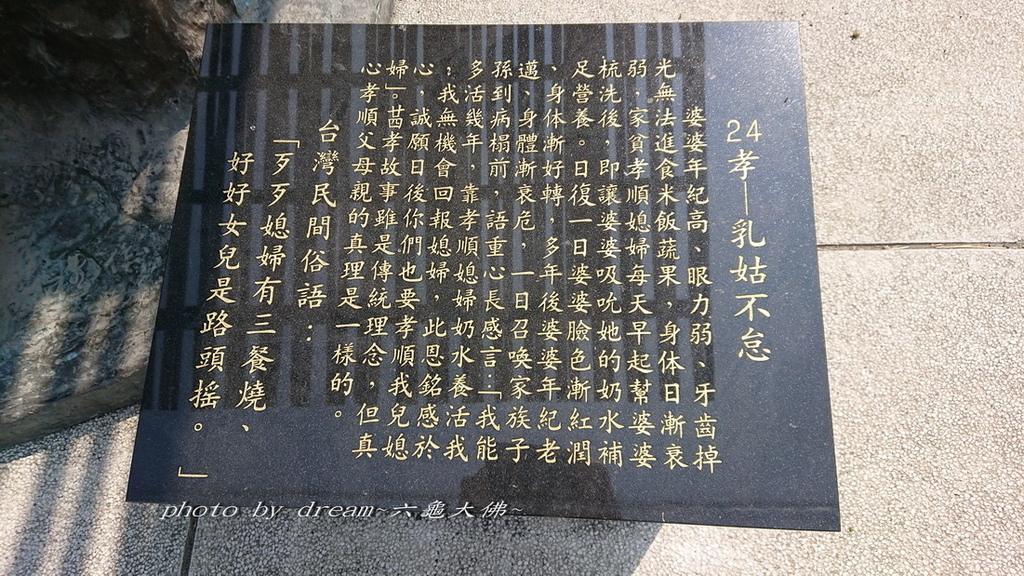 24孝—乳姑不怠
婆婆年紀高、眼力弱、牙齒掉
光無法進食米飯蔬果,身体日漸衰
弱,家貧孝順媳婦每天早起幫婆婆
梳洗後,即讓婆婆吸吮她的奶水補
足營養。日復一日婆婆臉色漸紅潤
、身体漸好轉,多年後婆婆年紀老
邁、身體漸衰危,一日召喚家族子
孫到病榻前,語重心長感言:「我能
多活幾年,靠孝順媳婦奶水養活我
;我無機會回報媳婦,此恩銘感於
心,誠願日後你們也要孝順我兒媳
婦」。孝故事雖是傳統理念,但真
心孝順父母親的真理是一樣的。
台灣民間俗語:
「歹歹媳婦有三餐燒、
好好女兒是路頭搖。」
photo by dream~六龜大佛~